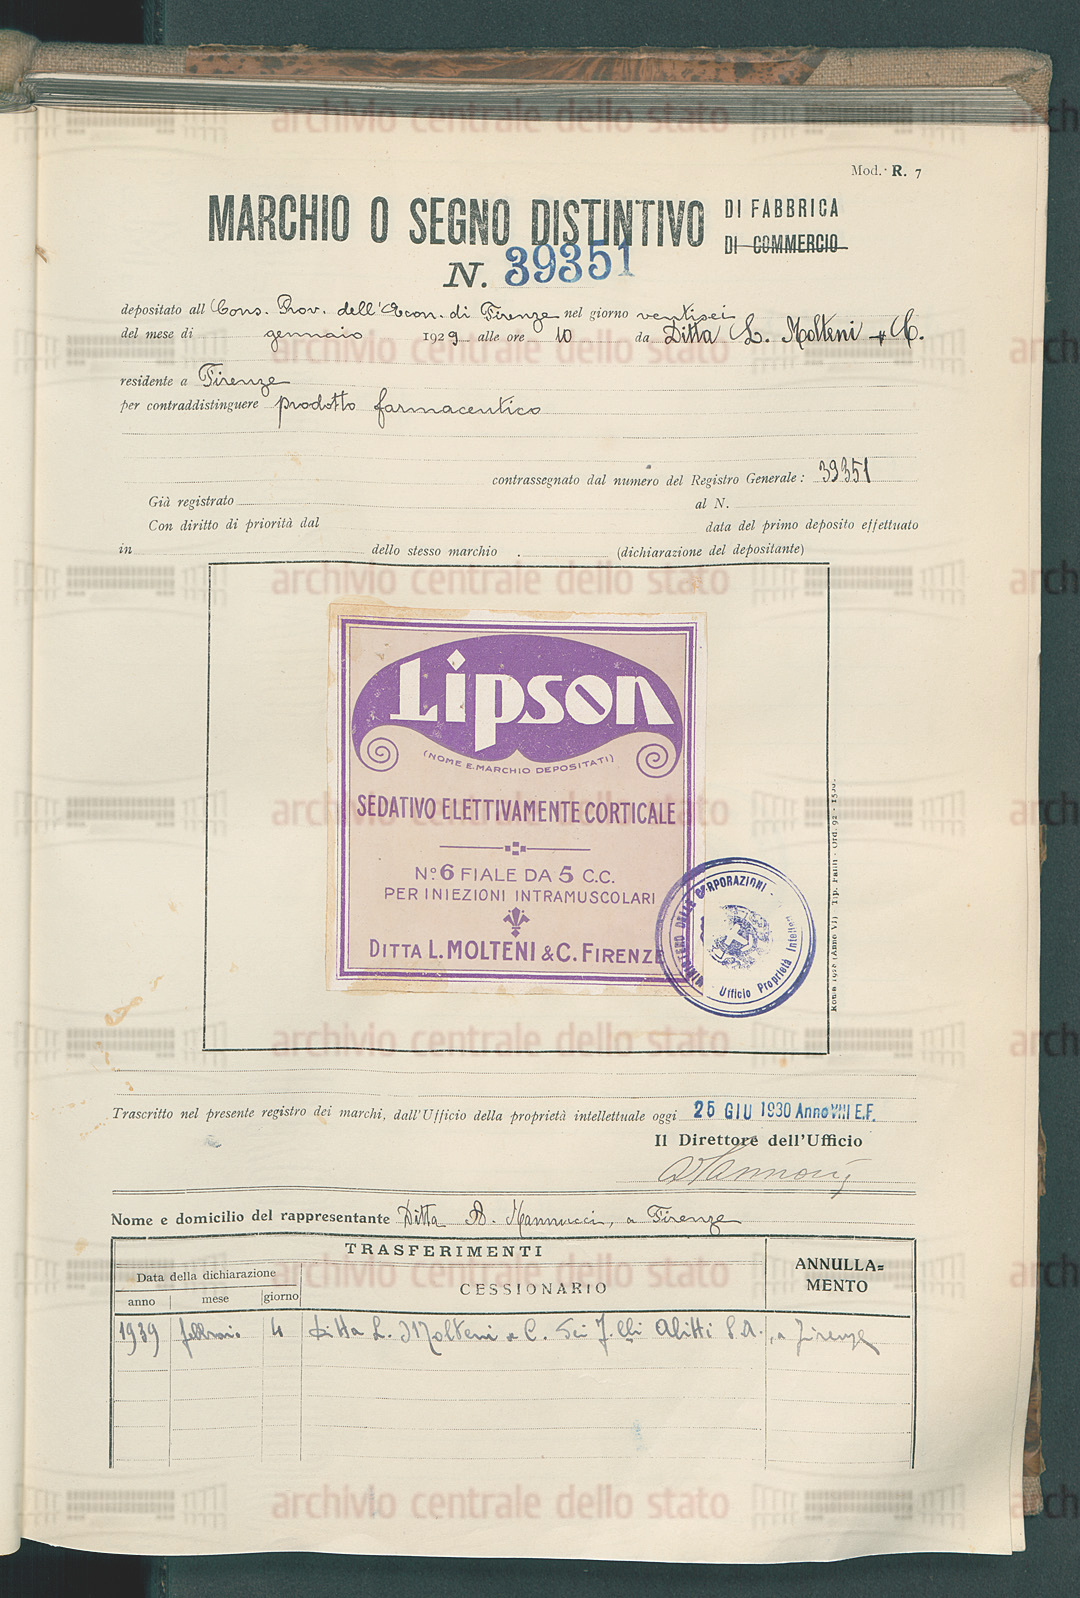 Mod. R. 7
MARCHIO O SEGNO DISTINTIVO DI FABBRICA
DI COMMERCIO
N. 39351
depositato all Cons. Prov. dell'Econ. di Firenze nel giorno ventisei
del mese di gennaio 1929 alle ore 10 da Ditta L. Molteni & C.
residente a Firenze
per contraddistinguere prodotto farmaceutico
contrassegnato dal numero del Registro Generale: 39351
Già registrato al N.
Con diritto di priorità dal data del primo deposito effettuato
in dello stesso marchio . (dichiarazione del depositante)
Lipson
(NOME E MARCHIO DEPOSITATI)
SEDATIVO ELETTIVAMENTE CORTICALE
No. 6 FIALE DA 5 C.C.
PER INIEZIONI INTRAMUSCOLARI
DITTA L. MOLTENI & C. FIRENZE
MINISTERO DELLE CORPORAZIONI
Ufficio Proprietà Intellett
Trascritto nel presente registro dei marchi, dall'Ufficio della proprietà intellettuale oggi 25 GIU 1930 Anno VIII E.F.
Il Direttore dell'Ufficio
Nome e domicilio del rappresentante Ditta A. Mannucci, a Firenze
TRASFERIMENTI
ANNULLA=
MENTO
Data della dichiarazione
CESSIONARIO
anno mese giorno
1939 febbraio 4 Ditta L. Molteni & C. dei F.lli Alitti S.A., a Firenze
archivio centrale dello stato